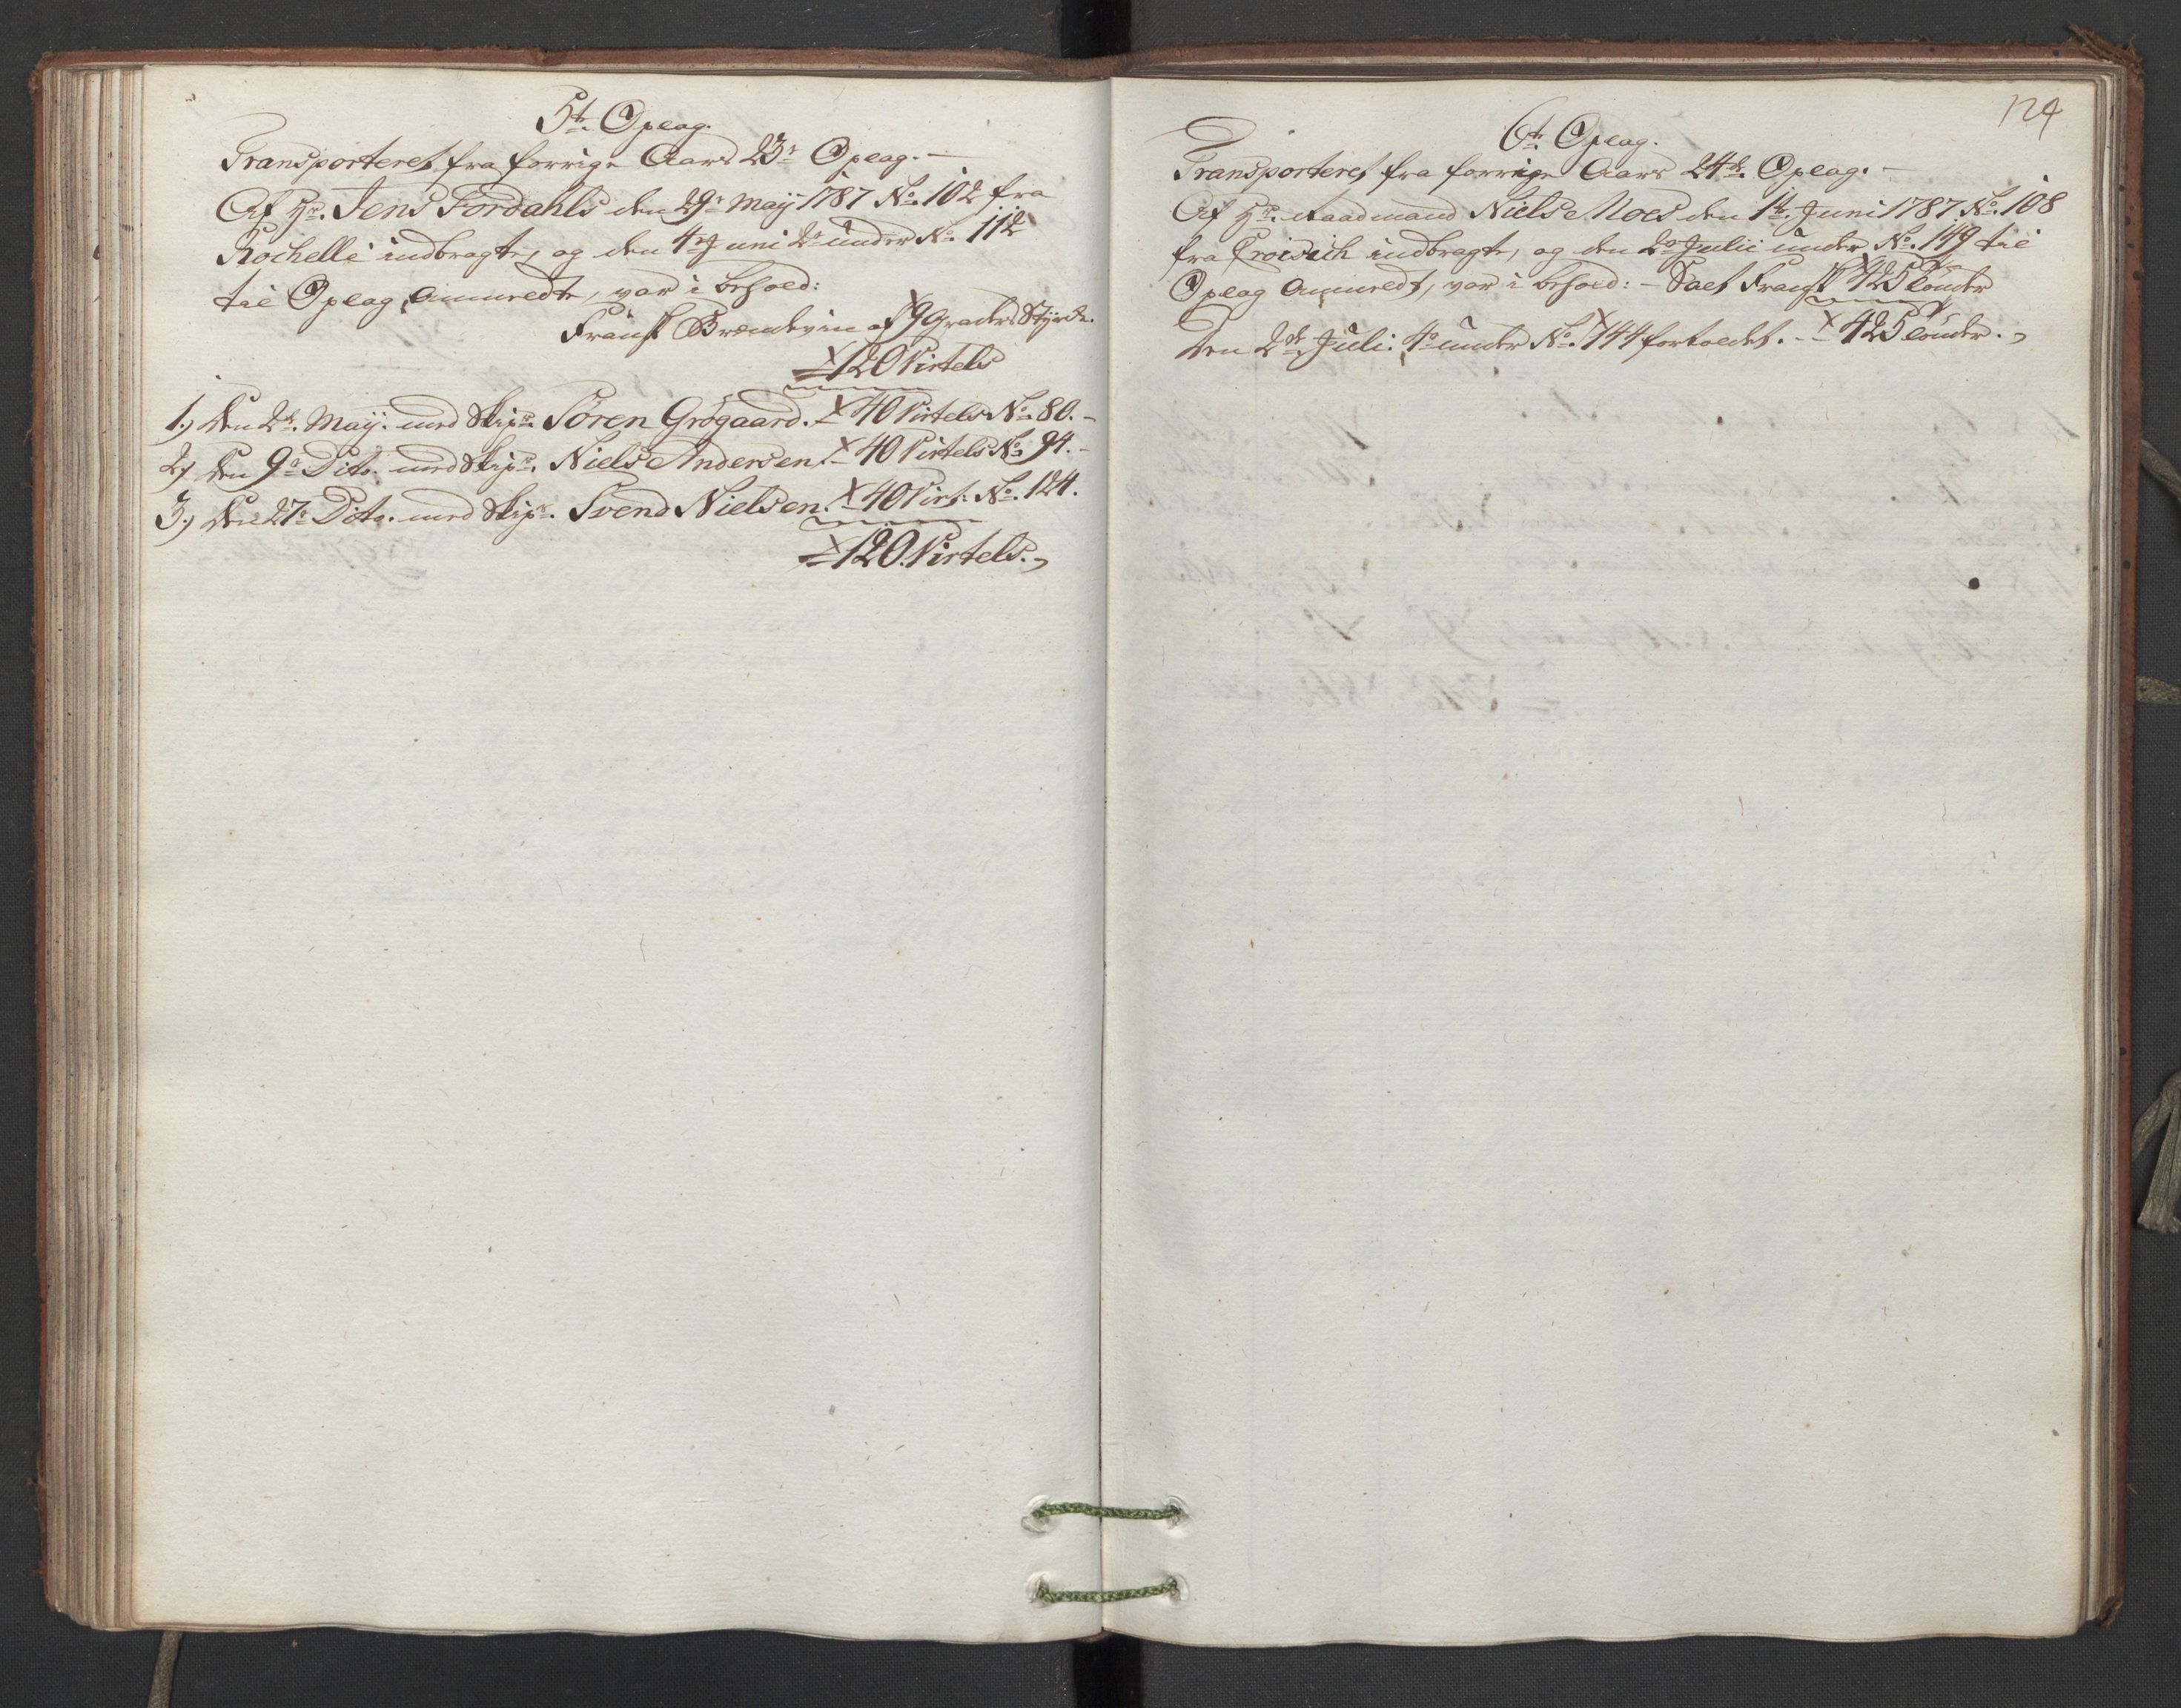 5te Oplag.
Transporteret fra forrige Aars 23de Oplag. -
Af Hr. Jens Fordahls den 29de Maij 1787 No. 102 fra
Rochelle indbragte, og den 4de Juni do under No. 112
til Oplag Anmeldte, var i behold:
Fransk Brændeviin af 9 Graders Styrke.
120 Virtels
1.) Den 2de Maij. med Skipr. Sören Grögaard. - 40 Virtels No. 80. -
2.) Den 9de Dito. med Skipr. Niels Andersen. - 40 Virtels No. 94. -
3.) Den 27de Dito. med Skipr. Svend Nielsen. - 40 Virt. No. 124.
120. Virtels.
124
6te Oplag.
Transporteret fra forrige Aars 24de Oplag. -
Af Hr. Raadmand Niels Moes den 1te Juni 1787 No. 108
fra Croisich indbragte, og den 2de Julii under No. 149 til
Oplag Anmeldt, var i behold: - Salt Fransk 425 Tönder
Den 2de Juli: under No. 744 fortoldet. - - 425 Tönder.